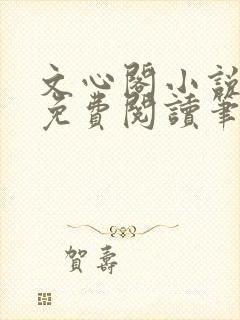 文心閣小說
免費閱讀筆
賀壽